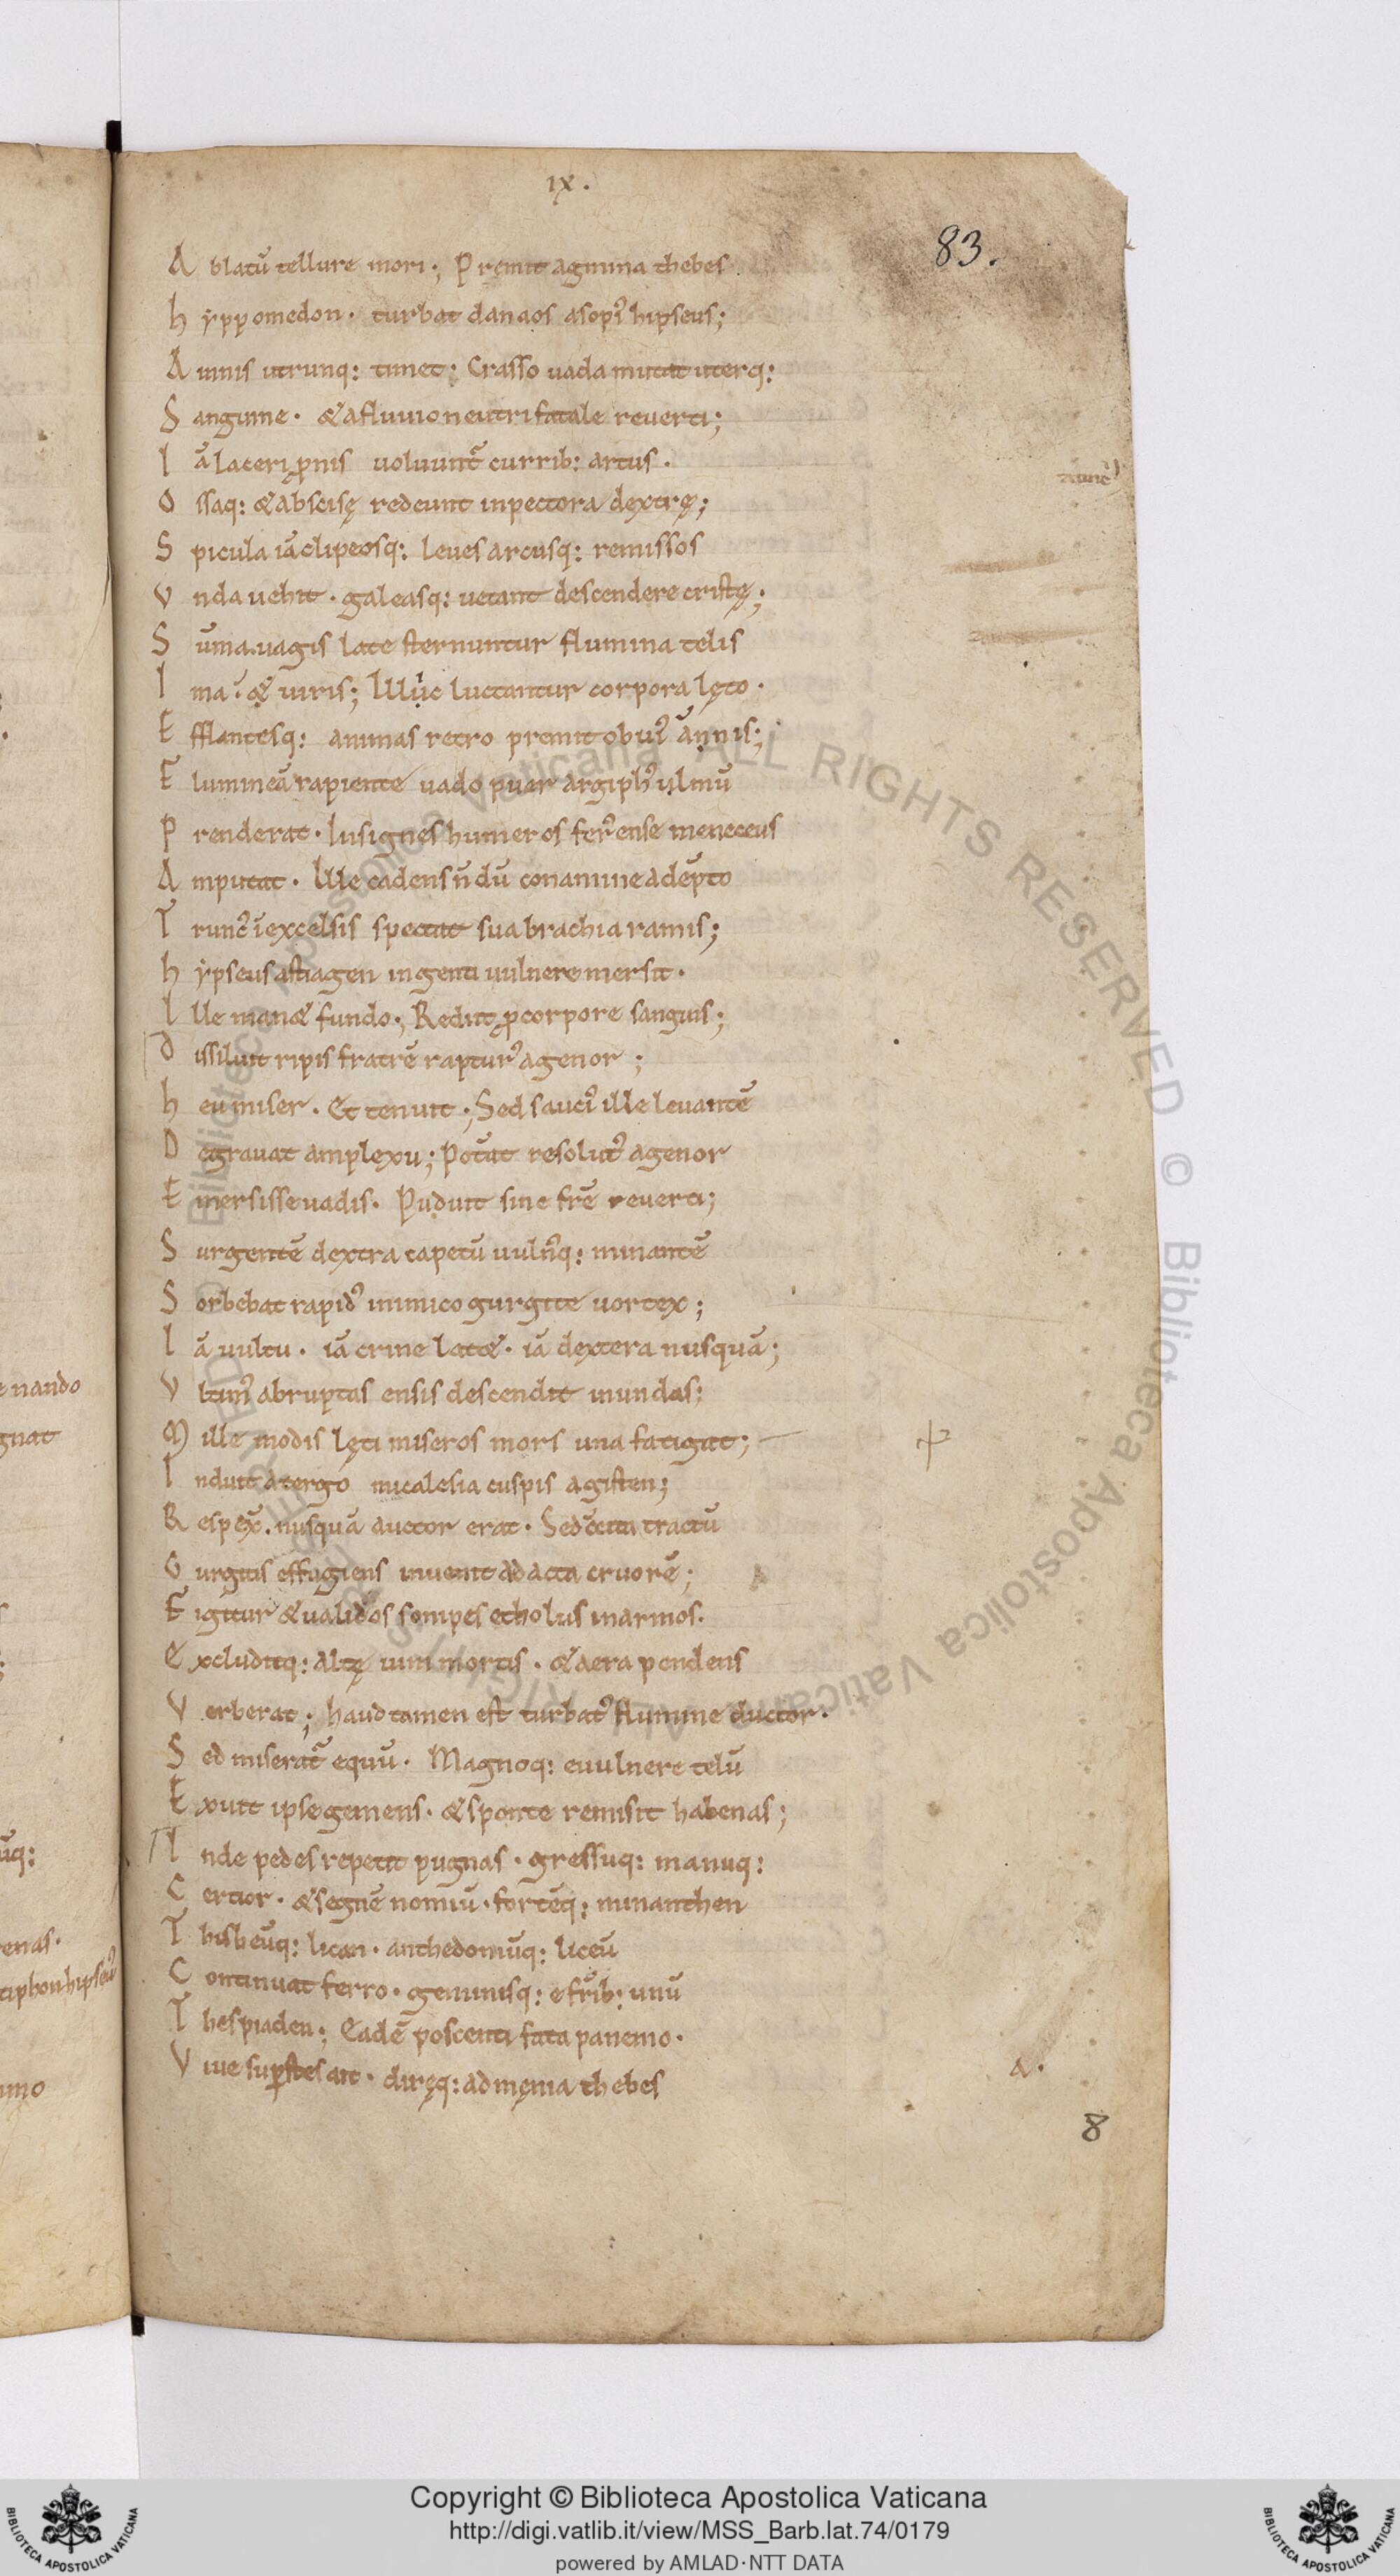 ıx.
83.
A blatū tellure mori; Pręmit agmina thebes
h ẏppomedon. turbat danaos asopı᷒ hipseus;
A mnis utrunq: timet. Crasso uada mutat uterq:
S anguine. & a fluuio neutri fatale reuerti;
I ā laceri ꝓnis uoluunt᷑ currib: artus.
O ssaq: & abscisę redeunt in pectora dextrę;
S picula iā clipeosq: leues arcusq: remissos
V nda uehit. galeasq: uetant descendere cristę;
S ūma uagis late sternuntur flumina telis
I ma. & uiris; Illuc luctantur corpora lęto.
E fflantesq: animas retro premit obui᷒ amnis;
F lumineā rapiente uado puer argiph᷒ ulmū
P renderat. Insignes humeros fer᷒ ense meneceus
A mputat. Ille cadens n̄dū conamine adēpto
T runc᷒ ī excelsis spectat sua brachia ramis;
h ẏpseus astiagen ingenti uulnere mersit.
I lle man& fundo; Rediit ꝓ corpore sanguis;
D issiluit ripis fratrē raptur᷒ agenor;
h eu miser. Et tenuit; Sed sauci᷒ ille leuantē
D egrauat amplexu; Potāt resolut᷒ agenor
E mersisse uadis. Puduit sine frē reuerti;
S urgentē dextra capetū uuln᷒q: minantē
S orbebat rapid᷒ inimico gurgite uortex;
I ā uultu. iā crine lat&. iā dextera nusquā;
V ltim᷒ abruptas ensis descendit in undas;
M ille modis lęti miseros mors una fatigat;
I nduit a tergo micalesia cuspis agisten;
R espex̄. nusquā auctor erat. Sed ċcita tractū
G urgitis effugiens inuenit ad acta cruorē;
F igitur & ualidos sonipes etholus in armos.
E xcluditq: altę uim mortis. & aera pendens
V erberat; haud tamen est turbat᷒ flumine ductor.
S ed miserat᷑ equū. Magnoq: e uulnere telū
E xuit ipse gemens. & sponte remisit habenas;
I nde pedes repetit pugnas. gressuq: manuq:
C ertior. & segnē nomiū. fortēq: minanthen
T hisbeūq: lican. anthedoniūq: liceū
C ontinuat ferro. geminisq: e frīb: unū
T hespiaden; Eadē poscenti fata panemo.
V iue suꝑstes ait. diręq: ad męnia thebes
8
e nando
gnat
ūq:
enas.
tiphon hipseu᷒
imo
Copyright © Biblioteca Apostolica Vaticana
http://digi.vatlib.it/view/MSS_Barb.lat.74/0179
powered by AMLAD·NTT DATA